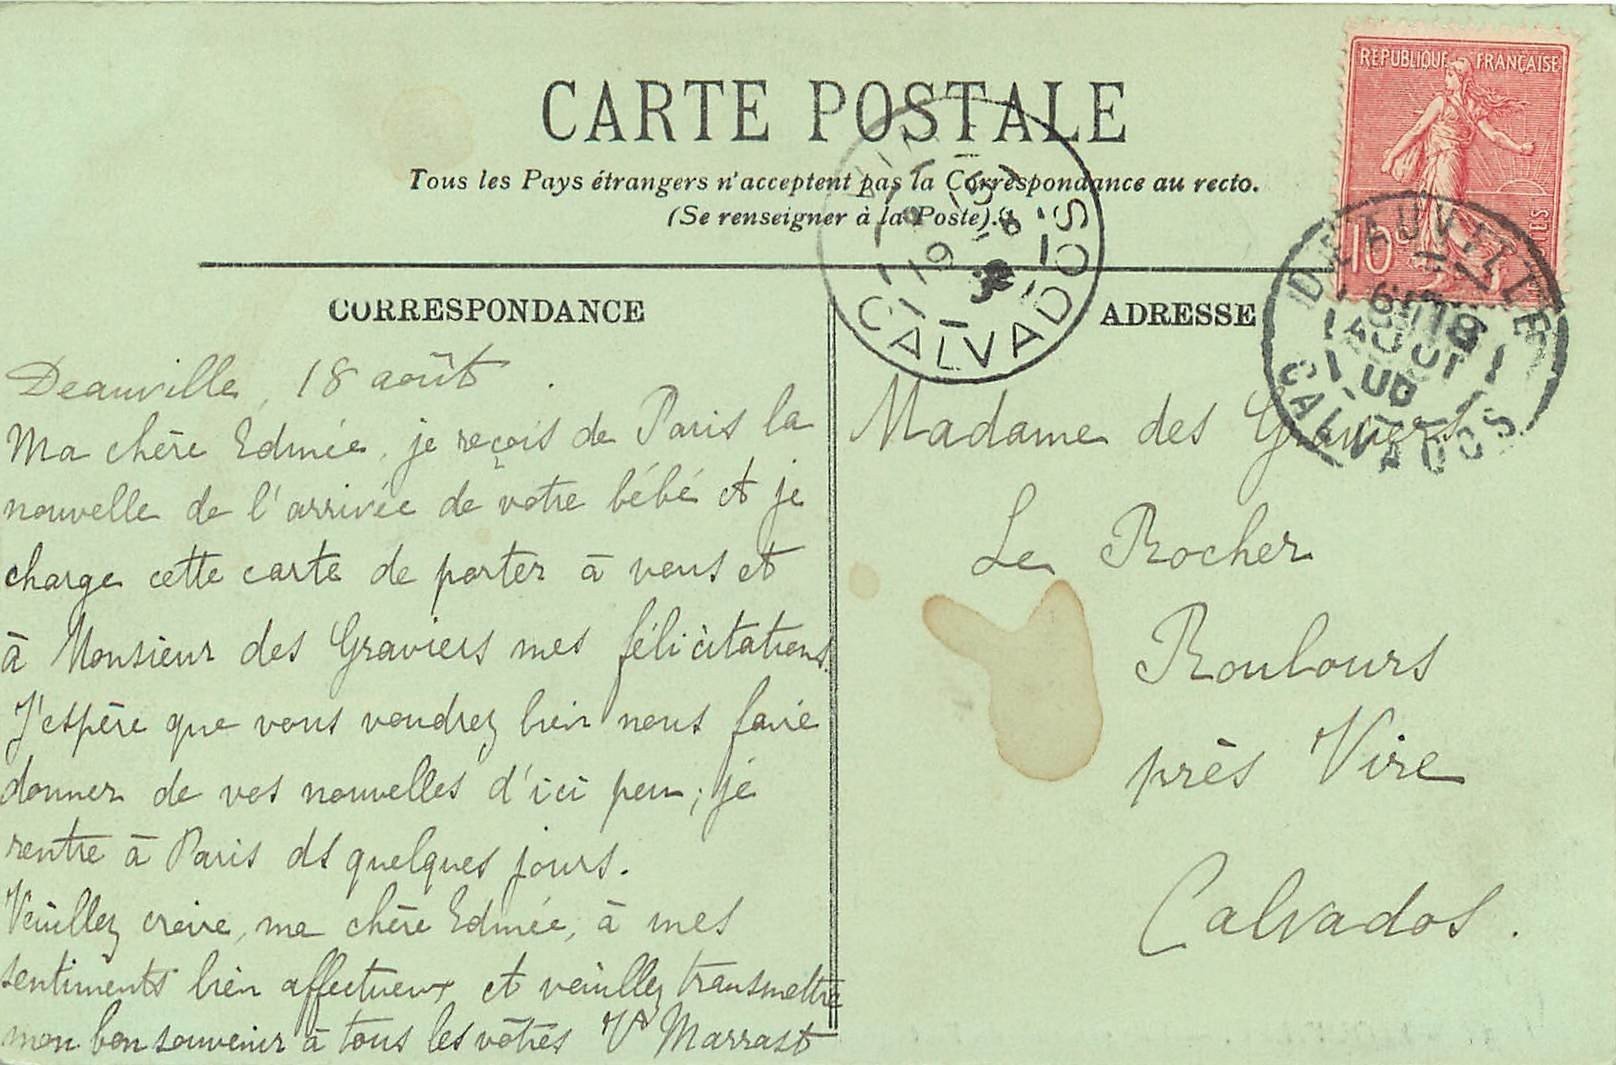 CARTE POSTALE
Tous les Pays étrangers n'acceptent pas la Correspondance au recto.
(Se renseigner à la Poste).
REPUBLIQUE FRANÇAISE
10
DEAUVILLE
18
AOUT
CALVADOS
19 -8
CALVADOS
CORRESPONDANCE
Deauville, 18 août.
Ma chère Edmée, je reçois de Paris la
nouvelle de l'arrivée de votre bébé et je
charge cette carte de porter à vous et
à Monsieur des Graviers mes félicitations.
J'espère que vous voudrez bien nous faire
donner de vos nouvelles d'ici peu; je
rentre à Paris ds quelques jours.
Veuillez croire, ma chère Edmée, à mes
sentiments bien affectueux et veuillez transmettre
mon bon souvenir à tous les vôtres Marrast
ADRESSE
Madame des Graviers
Le Rocher
Roulours
près Vire
Calvados.